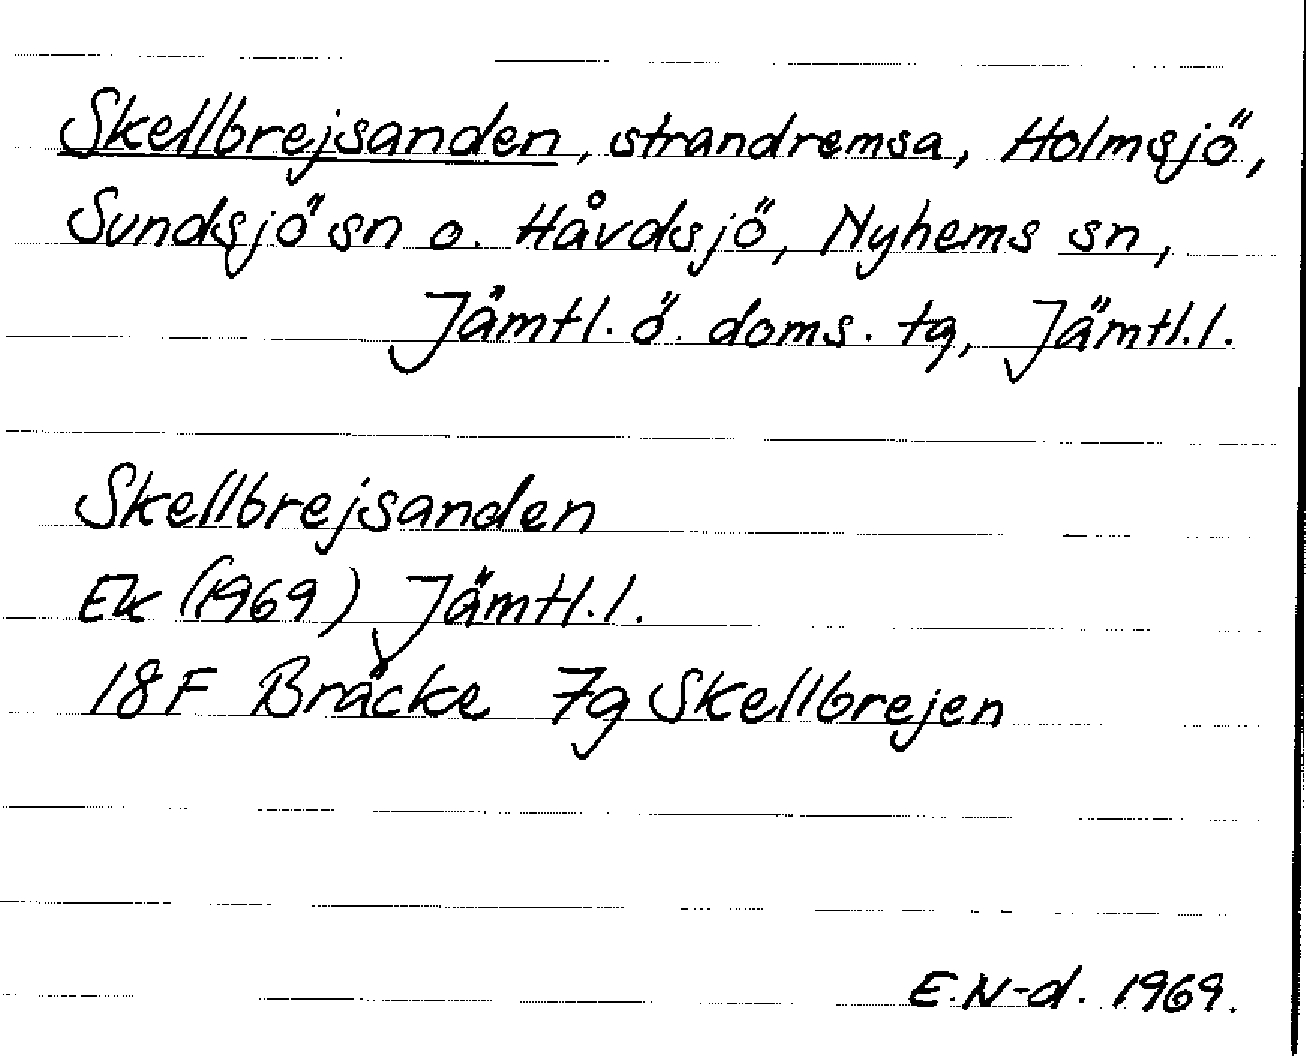 Skellbrejsanden, strandremsa, Holmsjö,
Sundsjö sn o. Håvdsjö, Nyhems sn,
Jämtl. ö. doms. tg, Jämtl.l.
Skellbrejsanden
Ek (1969) Jämtl.l.
18F Bräcke 7g Skellbrejen
E.N-d. 1969.